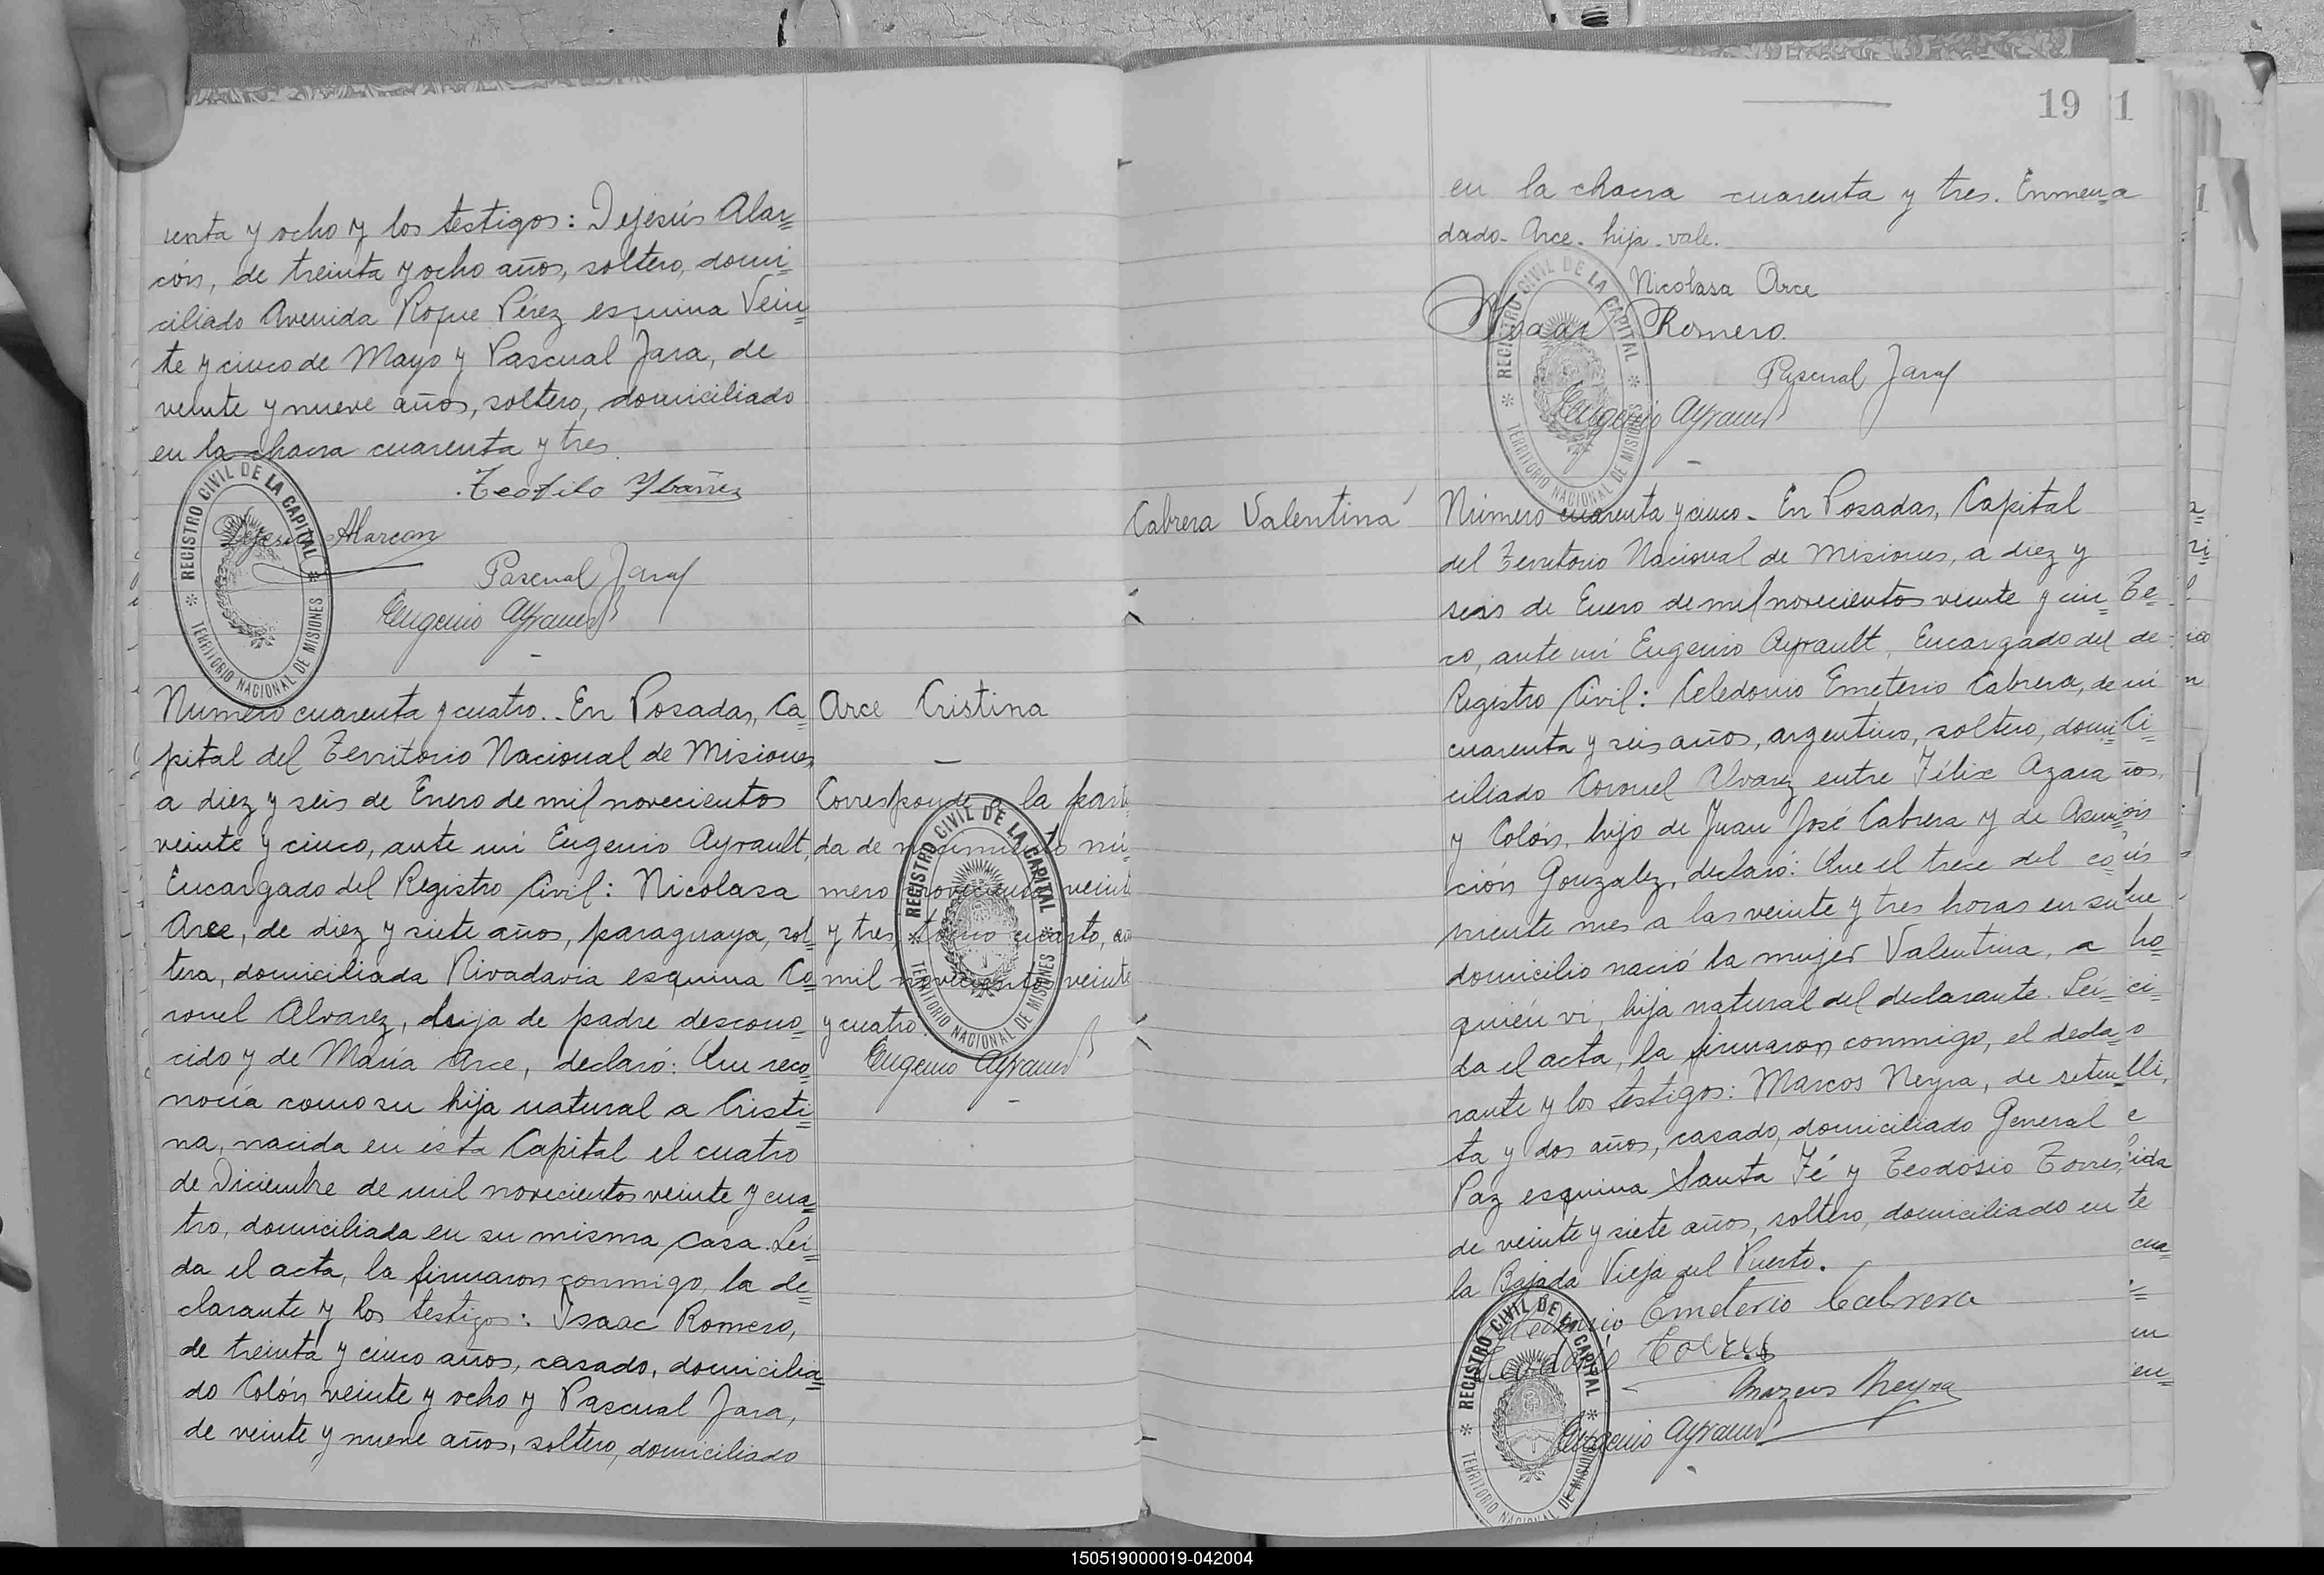 renta y ocho y los testigos: Dejesús Alar=
cón, de treinta y ocho años, soltero, domi=
ciliado Avenida Roque Pérez esquina Vein=
te y cinco de Mayo y Pascual Jara, de
veinte y nueve años, soltero, domiciliado
en la chacra cuarenta y tres.
Teofilo Ybañez
Dejesús Alarcon
Pascual Jara
Eugenio Ayrault
REGISTRO CIVIL DE LA CAPITAL
TERRITORIO NACIONAL DE MISIONES
Número cuarenta y cuatro.- En Posadas, Ca=
pital del Territorio Nacional de Misiones,
a diez y seis de Enero de mil novecientos
veinte y cinco, ante mi Eugenio Ayrault,
Encargado del Registro Civil: Nicolasa
Arce, de diez y siete años, paraguaya, sol=
tera, domiciliada Rivadavia esquina Co=
ronel Alvarez, hija de padre descono=
cido y de María Arce, declaró: Que reco=
nocía como su hija natural a Cristi=
na, nacida en ésta Capital el cuatro
de Diciembre de mil novecientos veinte y cua=
tro, domiciliada en su misma casa. Leí=
da el acta, la firmaron conmigo, la de=
clarante y los testigos: Isaac Romero,
de treinta y cinco años, casado, domicilia=
do Colón veinte y ocho y Pascual Jara,
de veinte y nueve años, soltero, domiciliado
Arce Cristina
Corresponde a la parti
da de nacimiento nú=
mero novecientos veint
y tres, tomo cuarto, añ
mil novecientos veinte
y cuatro.
Eugenio Ayrault
REGISTRO CIVIL DE LA CAPITAL
TERRITORIO NACIONAL DE MISIONES
19
1
en la chacra cuarenta y tres. Enmen=
dado- Arce- hija- vale.
Nicolasa Arce
Ysaac Romero.
Pascual Jara
Eugenio Ayrault
REGISTRO CIVIL DE LA CAPITAL
TERRITORIO NACIONAL DE MISIONES
Cabrera Valentina
Número cuarenta y cinco.- En Posadas, Capital
del Territorio Nacional de Misiones, a diez y
seis de Enero de mil novecientos veinte y cin=
co, ante mi Eugenio Ayrault, Encargado del
Registro Civil: Celedonio Emeterio Cabrera, de
cuarenta y seis años, argentino, soltero, domi=
ciliado Coronel Alvarez entre Félix Azara
y Colón, hijo de Juan José Cabrera y de Asun=
ción Gonzalez, declaró: Que el trece del co=
rriente mes a las veinte y tres horas en su
domicilio nació la mujer Valentina, a
quién vi, hija natural del declarante. Leí=
da el acta, la firmaron conmigo, el decla=
rante y los testigos: Marcos Neyra, de seten=
ta y dos años, casado, domiciliado General
Paz esquina Santa Fé y Teodosio Torres,
de veinte y siete años, soltero, domiciliado en
la Bajada Vieja del Puerto.
Celedonio Emeterio Cabrera
Teodosio Torres
Marcos Neyra
Eugenio Ayrault
REGISTRO CIVIL DE LA CAPITAL
TERRITORIO NACIONAL DE MISIONES
150519000019-042004